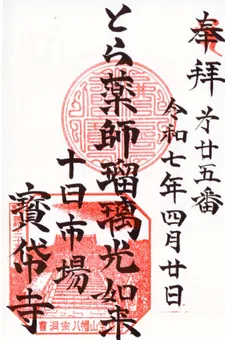 奉拝
第廿五番
令和七年四月廿日
とら薬師瑠璃光如来
十日市場
寳帒寺
曹洞宗八幡山